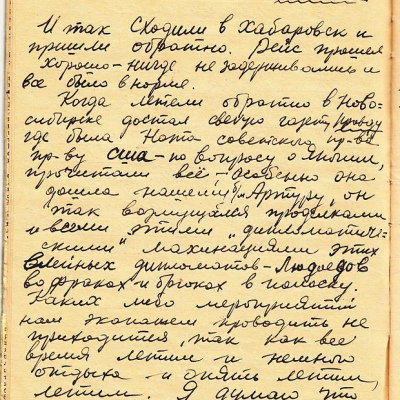 И так сходили в Хабаровск и
пришли обратно. Рейс прошел
хорошо – нигде не задерживались и
все было в норме.
Когда летели обратно в Ново-
сибирке достал свежую газет, Правду
где была Нота советского пр-ва
пр-ву сша – по вопросу о Японии,
прочитали всё – особенно она
дошла нашему Артуру, он
так возмущался проделками
и всеми этими „дипломатиче-
скими" махинациями этих
дипломатов – Людоедов
во фраках и брюках в полоску.
Каких либо мероприятий
нам экипажем проводить не
приходится, так как все
время летим и немного
отдыха – и опять летим,
летим. Я думаю что